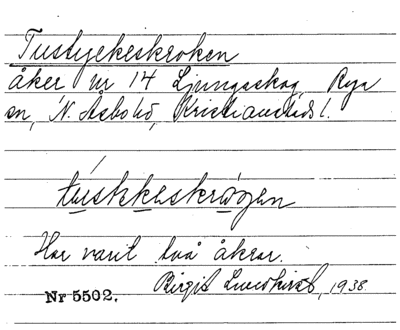 Tustyckeskroken
åker nr 14 Ljungaskog, Rya
sn, N. Åsbo hd, Kristianstads l.
Har varit två åkrar.
Birgit Lundkvist, 1938.
Nr 5502.